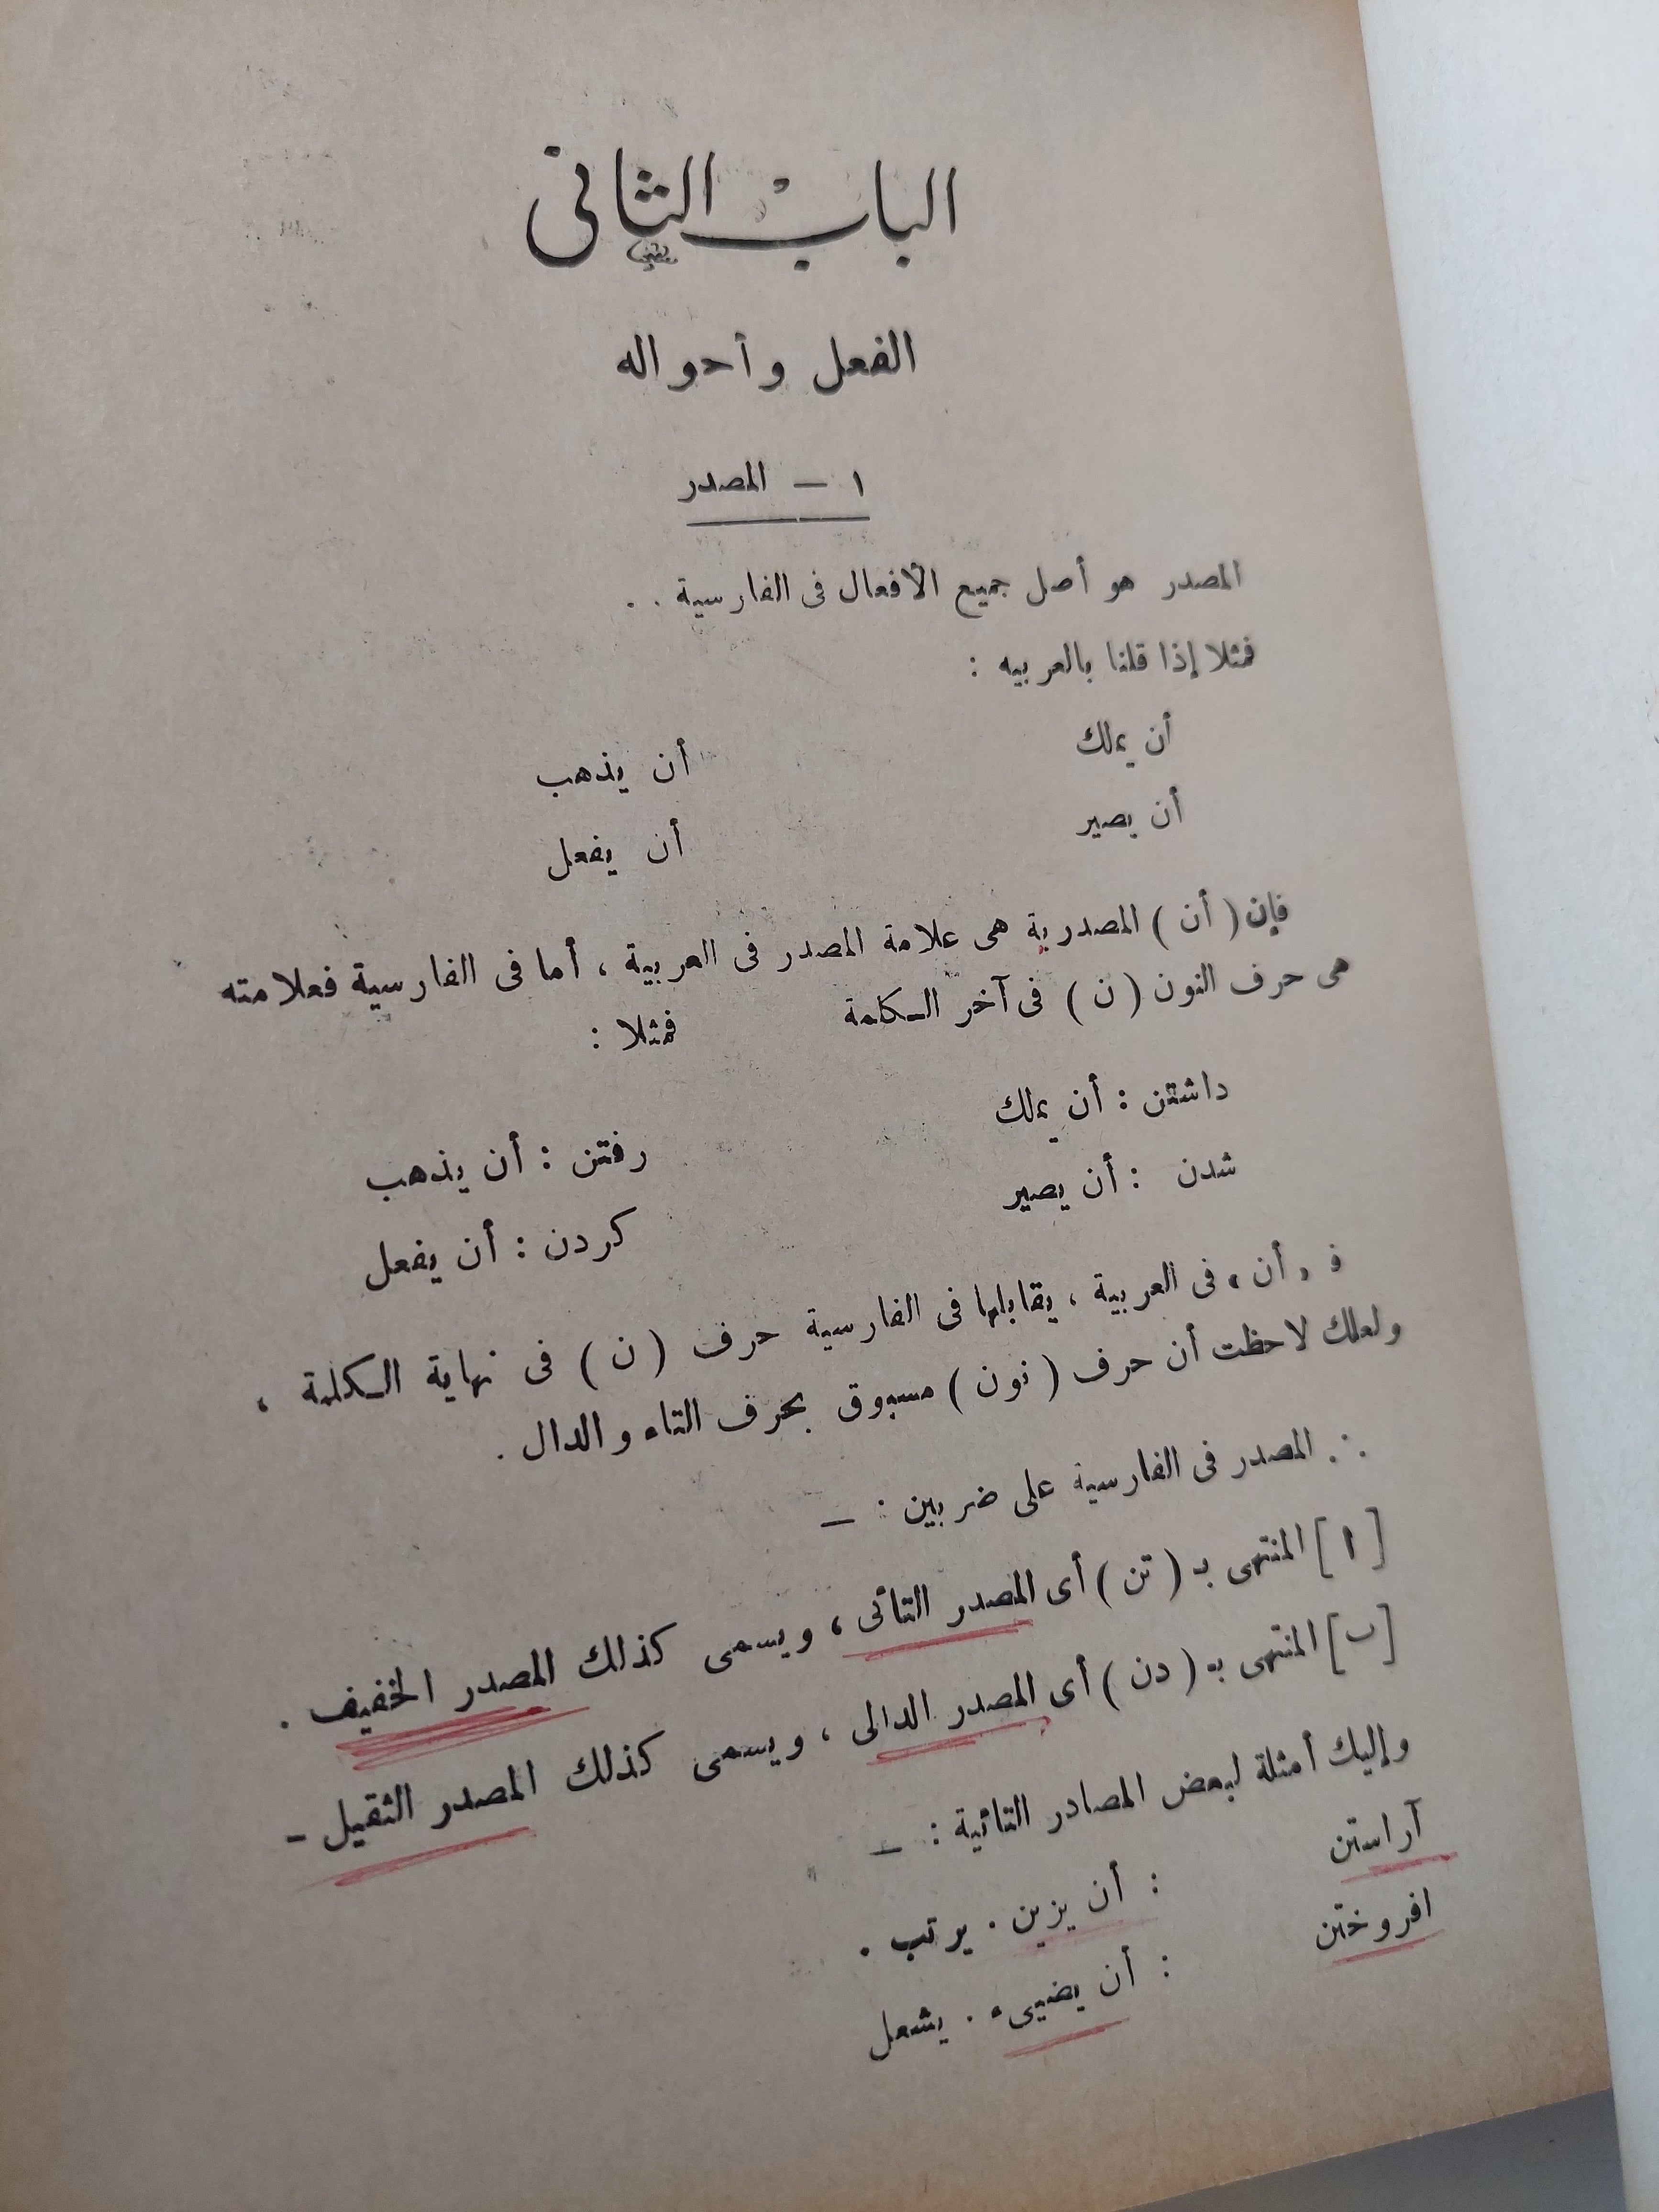 الباب الثانى
الفعل وأحواله
١ — المصدر
المصدر هو أصل جميع الافعال فى الفارسية . .
فمثلا إذا قلنا بالعربيه :
أن يملك أن يذهب
أن يصير أن يفعل
فإن ( أن ) المصدرية هى علامة المصدر فى العربية ، أما فى الفارسية فعلامته
هى حرف النون ( ن ) فى آخر الكلمة فمثلا :
داشتن : أن يملك رفتن : أن يذهب
شدن : أن يصير كردن : أن يفعل
فـ « أن » فى العربية ، يقابلها فى الفارسية حرف ( ن ) فى نهاية الكلمة ،
ولعلك لاحظت أن حرف ( نون ) مسبوق بحرف التاء والدال .
∴ المصدر فى الفارسية على ضربين : —
[ ا ] المنتهى بـ ( تن ) أى المصدر التائى ، ويسمى كذلك المصدر الخفيف .
[ ب ] المنتهى بـ ( دن ) أى المصدر الدالى ، ويسمى كذلك المصدر الثقيل -
وإليك أمثلة لبعض المصادر التائية : —
آراستن : أن يزين . يرتب .
افروختن : أن يضيىء . يشعل